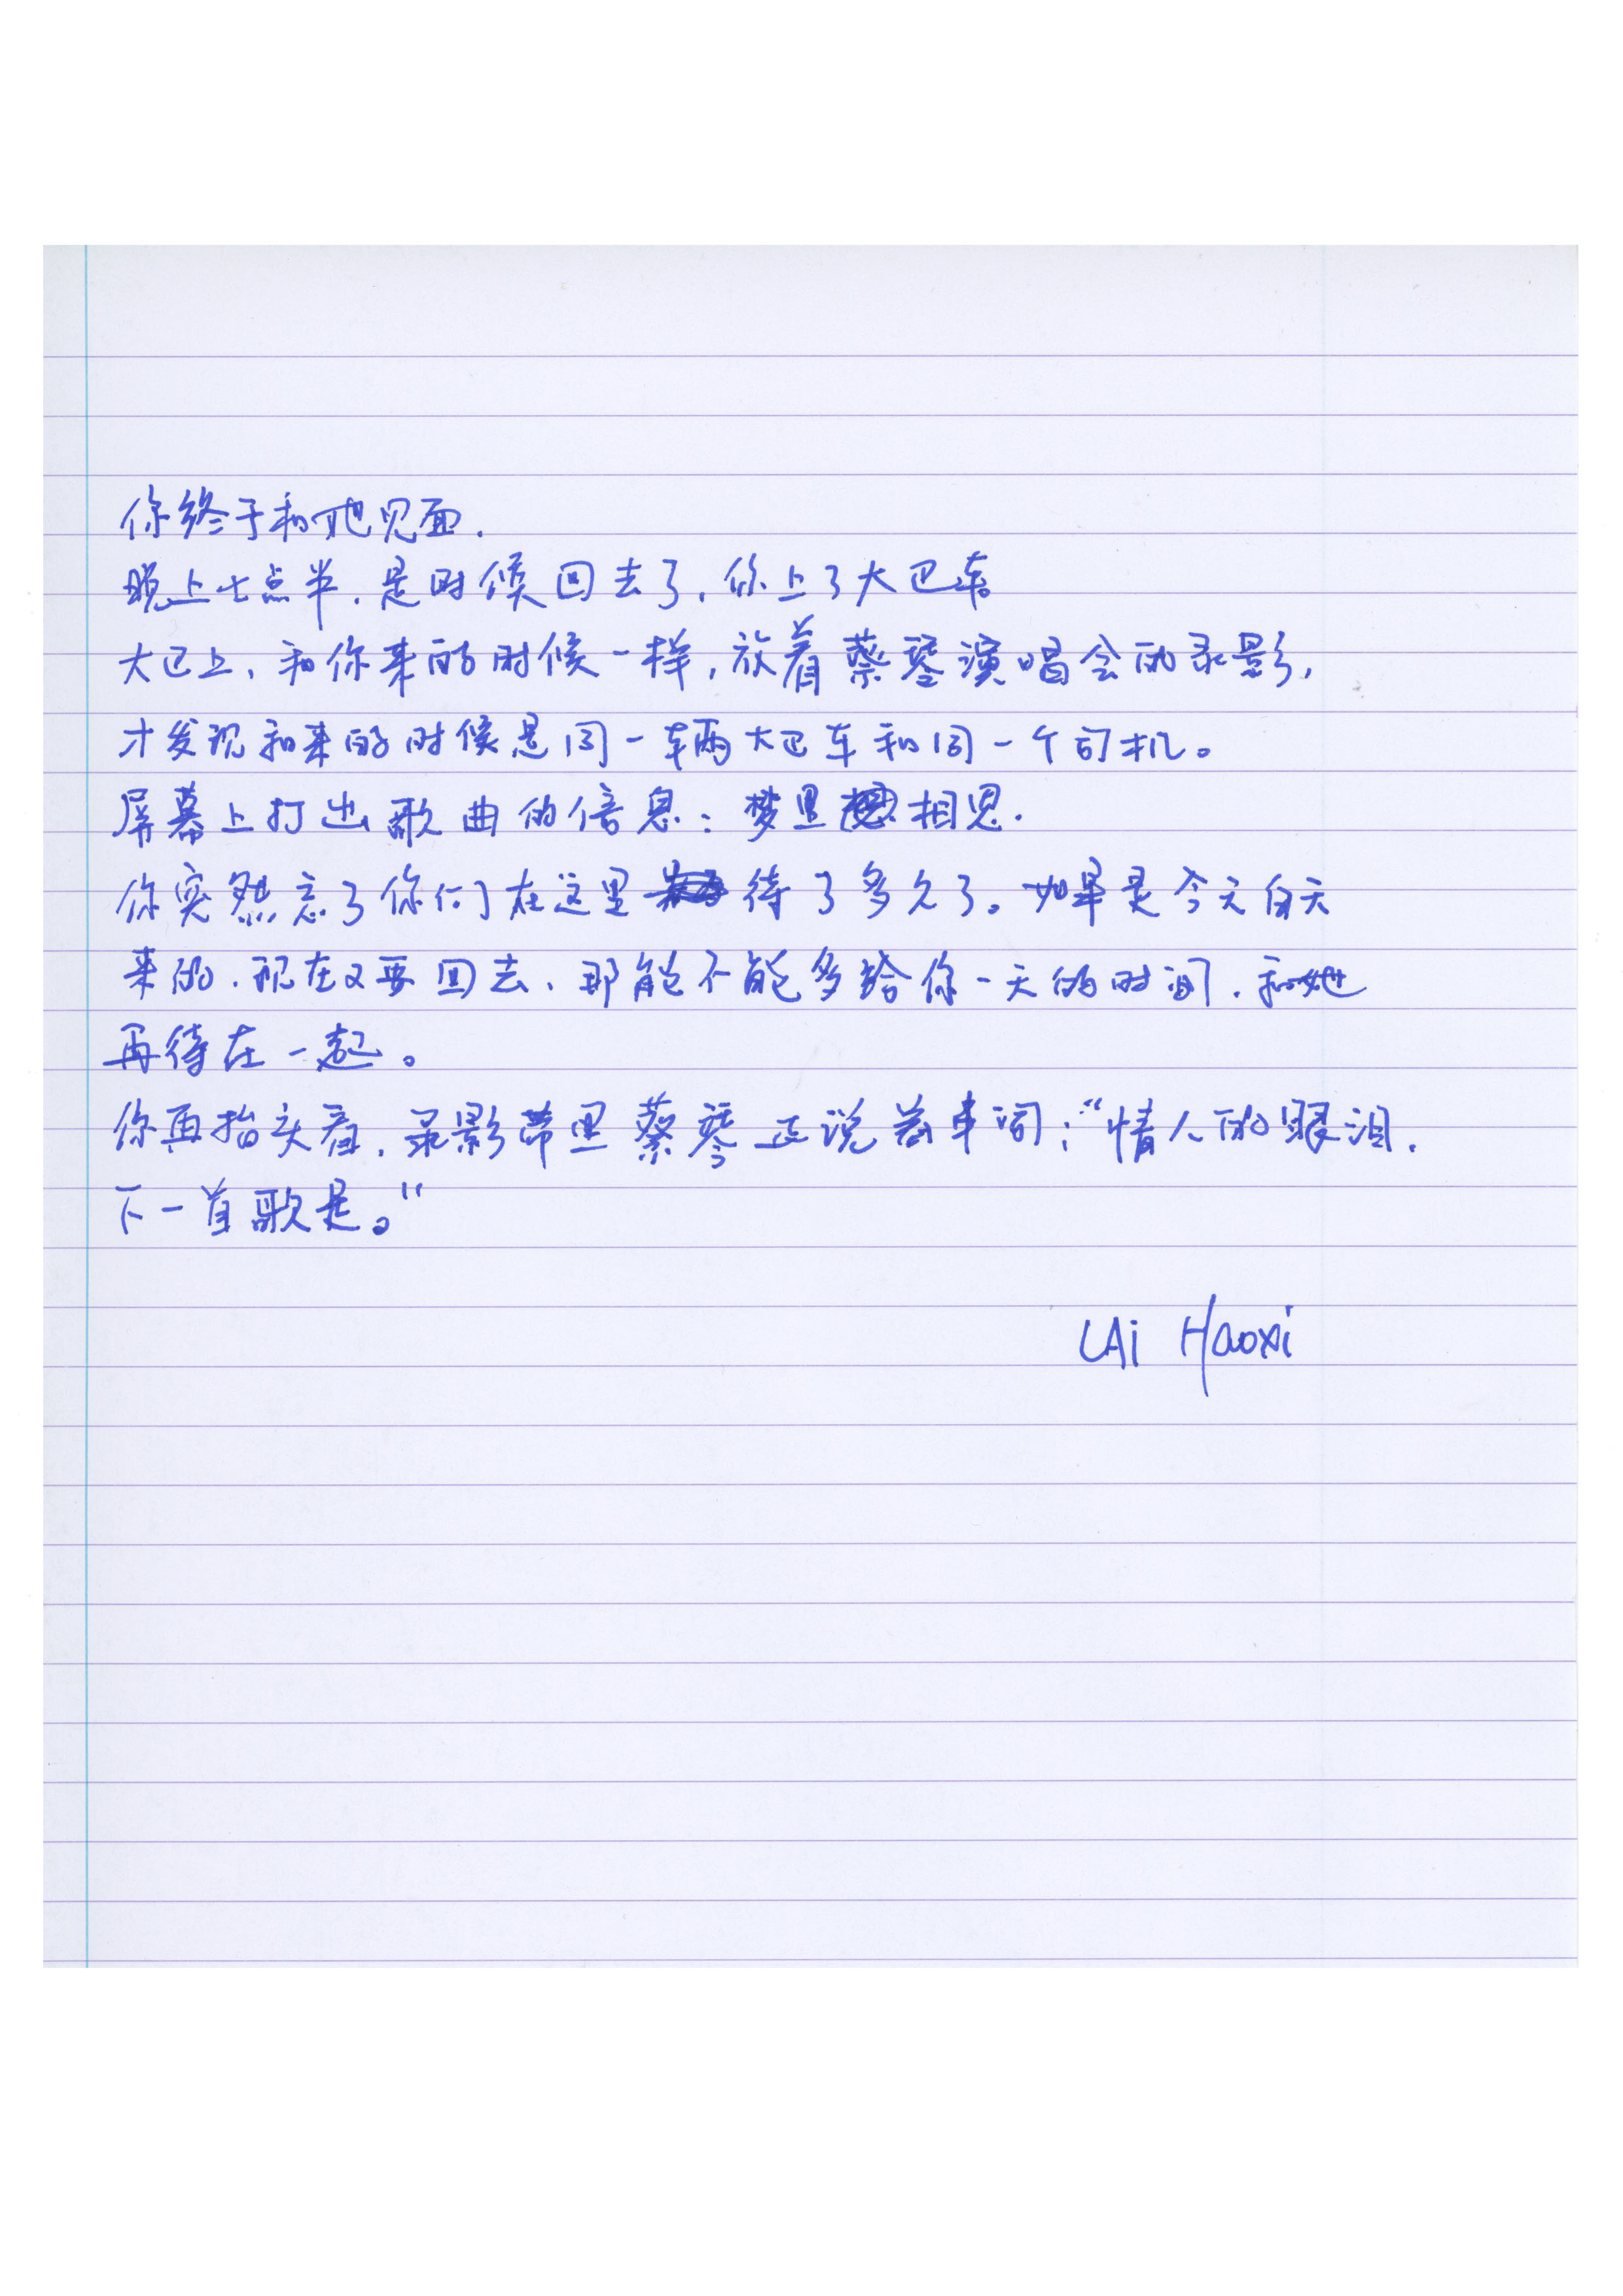 你终于和她见面.
晚上七点半,是时候回去了,你上了大巴车
大巴上、和你来的时候一样,放着蔡琴演唱会的录影,
才发现和来的时候是同一辆大巴车和同一个司机。
屏幕上打出歌曲的信息:梦里相思.
你突然忘了你们在这里待了多久了。如果是今天白天
来的.现在又要回去、那能不能多给你一天的时间.和她
再待在一起。
你再抬头看,录影带里蔡琴正说着串词:“情人的眼泪.
下一首歌是。”
LAi Haoxi